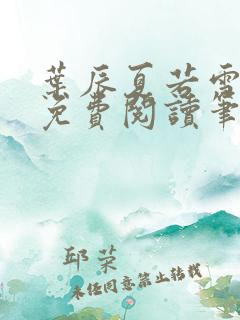 葉辰夏若雪
免費閱讀筆
邱荣
未经同意禁止转载